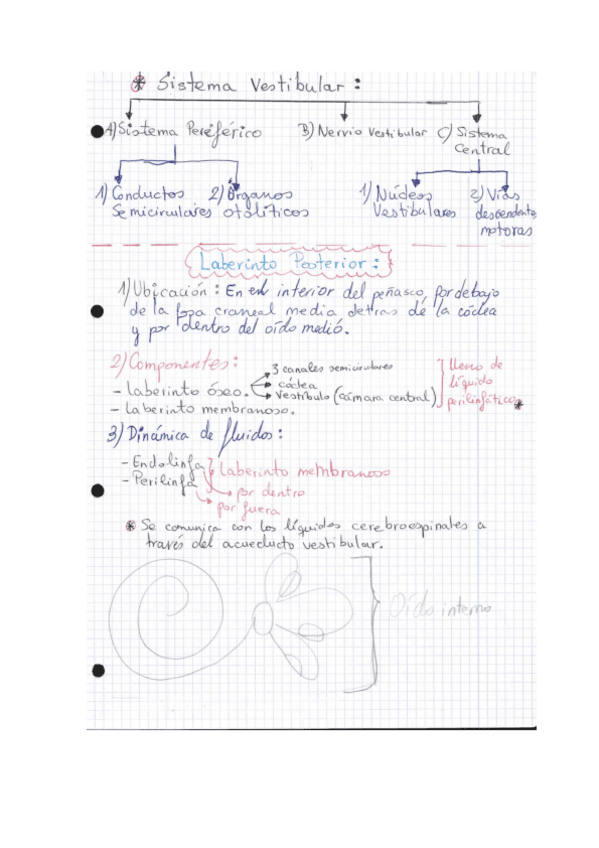 * Sistema Vestibular:
A) Sistema Periférico B) Nervio Vestibular C) Sistema Central
1) Conductos Semicirculares 2) Órganos otolíticos 1) Núcleos Vestibulares 2) Vías descendentes motoras
Laberinto Posterior:
1) Ubicación: En el interior del peñasco, por debajo
de la fosa craneal media detras de la cóclea
y por dentro del oído medió.
2) Componentes:
- Laberinto óseo. 3 canales semicirculares
cóclea
Vestíbulo (cámara central)
lleno de
líquido
perilinfático *
- Laberinto membranoso.
3) Dinámica de fluidos:
- Endolinfa
- Perilinfa
Laberinto membranoso
por dentro
por fuera
* Se comunica con los líquidos cerebroespinales a
través del acueducto vestibular.
Oído interno